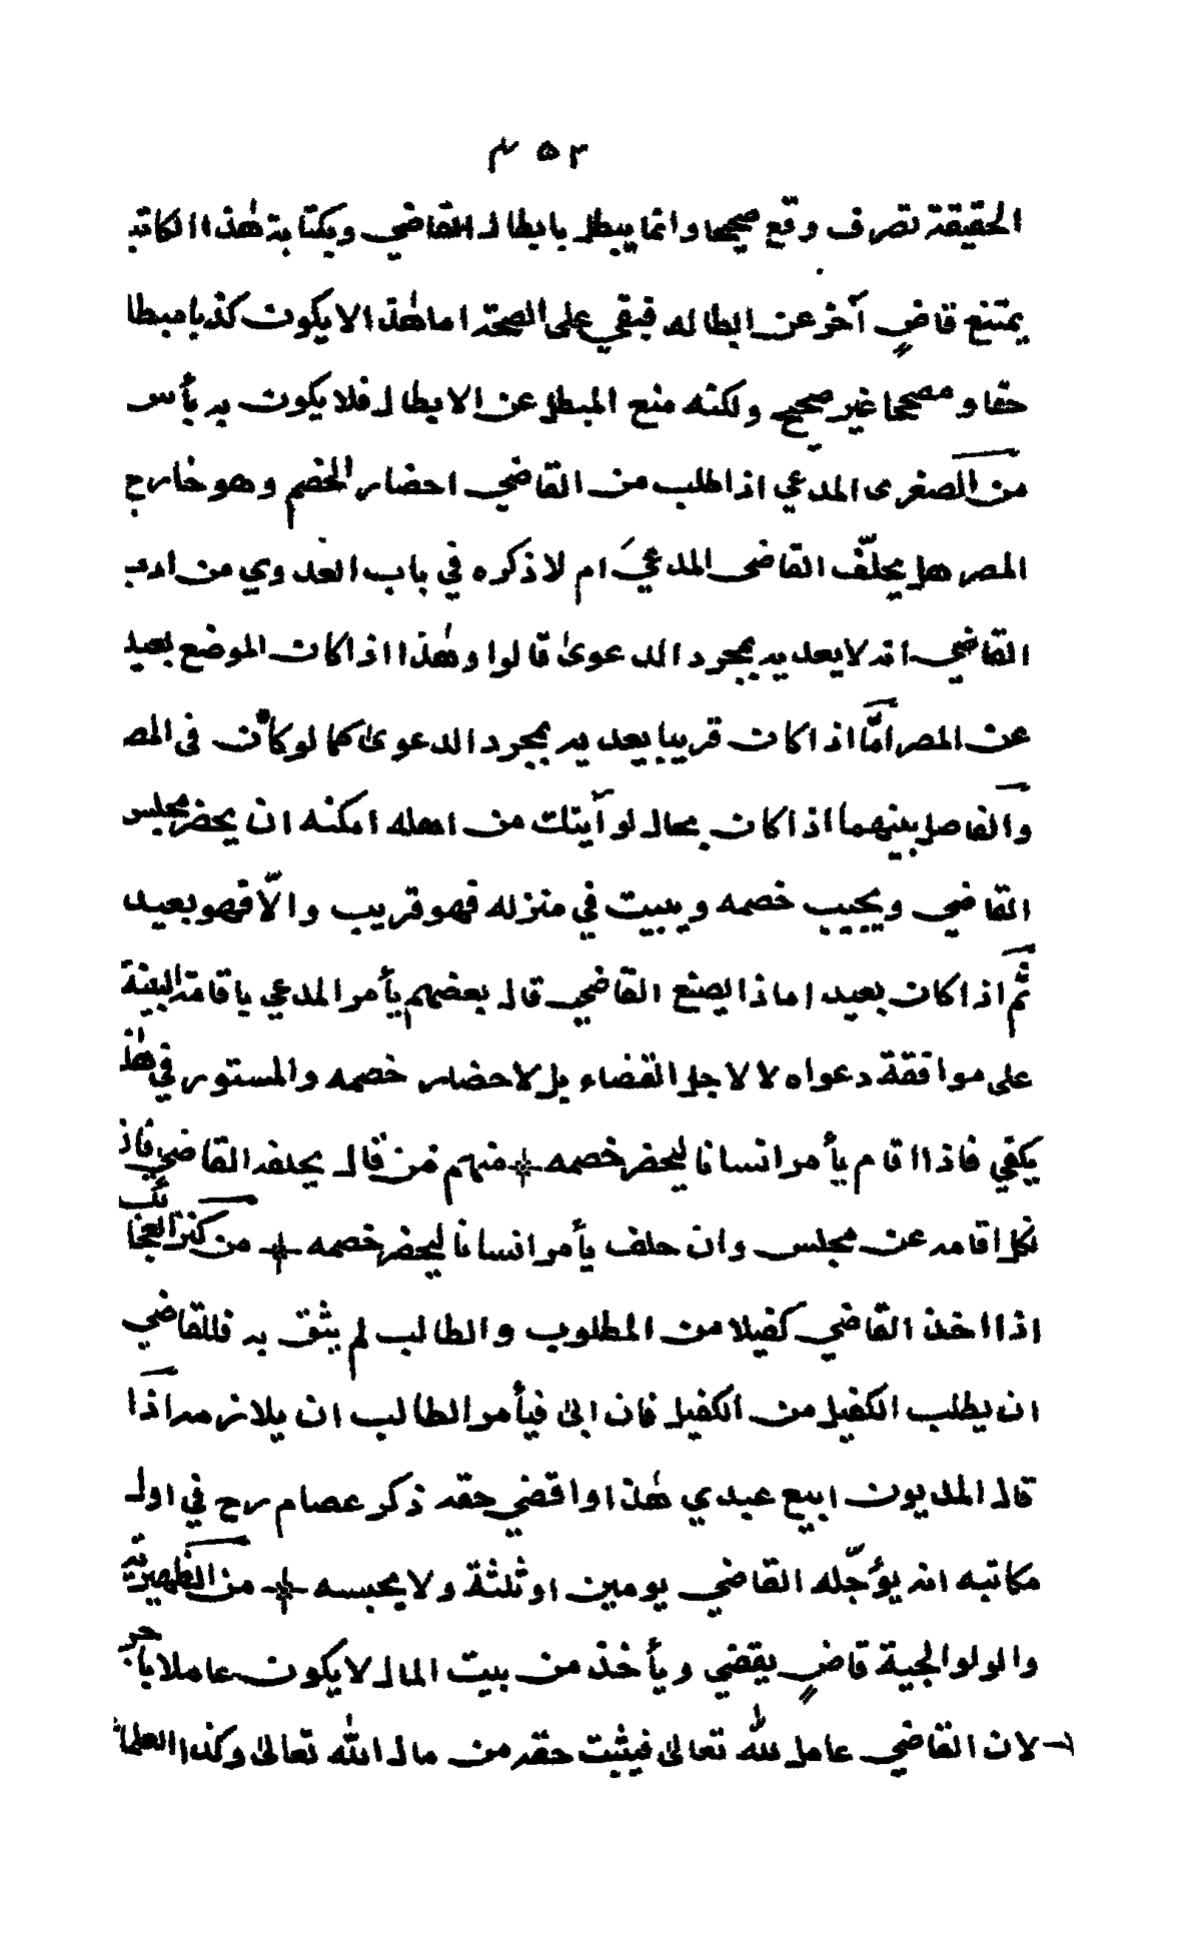 ٤٥٣
الحقيقة تصرف وقع صحيحا وانما يبطل بابطال القاضي وبكتابة هٰذا الكاتب
يمتنع قاضٍ آخر عن ابطاله فبقي على الصحة اما هٰذا لا يكون كذبا مبطلا
حقا و مصححا غير صحيح ولكنه منع المبطل عن الابطال فلا يكون به بأس
من الصغرى المدعي اذا طلب من القاضي احضار الخصم وهو خارج
المصر هل يحلّف القاضى المدعيَ ام لا ذكره في باب العدوي من ادب
القاضي انه لا يعديه بمجرد الدعوىٰ قالوا وهٰذا اذا كان الموضع بعيدا
عن المصر امَّا اذا كان قريبا يعديه بمجرد الدعوىٰ كما لو كان فى المصر
والفاصل بينهما اذا كان بحال لو آبتك من اهله امكنه ان يحضر مجلس
القاضي ويجيب خصمه ويبيت في منزله فهو قريب والّا فهو بعيد
ثم اذا كان بعيدا ماذا يصنع القاضي قال بعضهم يأمر المدعي باقامة البينة
على موافقة دعواه لا لاجل القضاء بل لاحضار خصمه والمستور في هٰذا
يكفي فاذا اقام يأمر انسانا ليحضر خصمه ٭ منهم من قال يحلفه القاضي فاذ
نكل اقامه عن مجلس وان حلف يأمر انسانا ليحضر خصمه ٭ من كنز العجائب
اذا اخذ القاضي كفيلا من المطلوب والطالب لم يثق به فللقاضي
ان يطلب الكفيل من الكفيل فان ابىٰ فيأمر الطالب ان يلازمه اذا
قال المديون ابيع عبدي هٰذا واقضي حقه ذكر عصام رح في اول
مكاتبه انه يؤجّله القاضي يومين او ثلثة ولا يحبسه ٭ من الظهيرية
والولوالجية قاضٍ يقضي ويأخذ من بيت المال لا يكون عاملا باجر
لان القاضي عامل للّٰه تعالىٰ فيثبت حقه من مال اللّٰه تعالىٰ وكذا العلماء